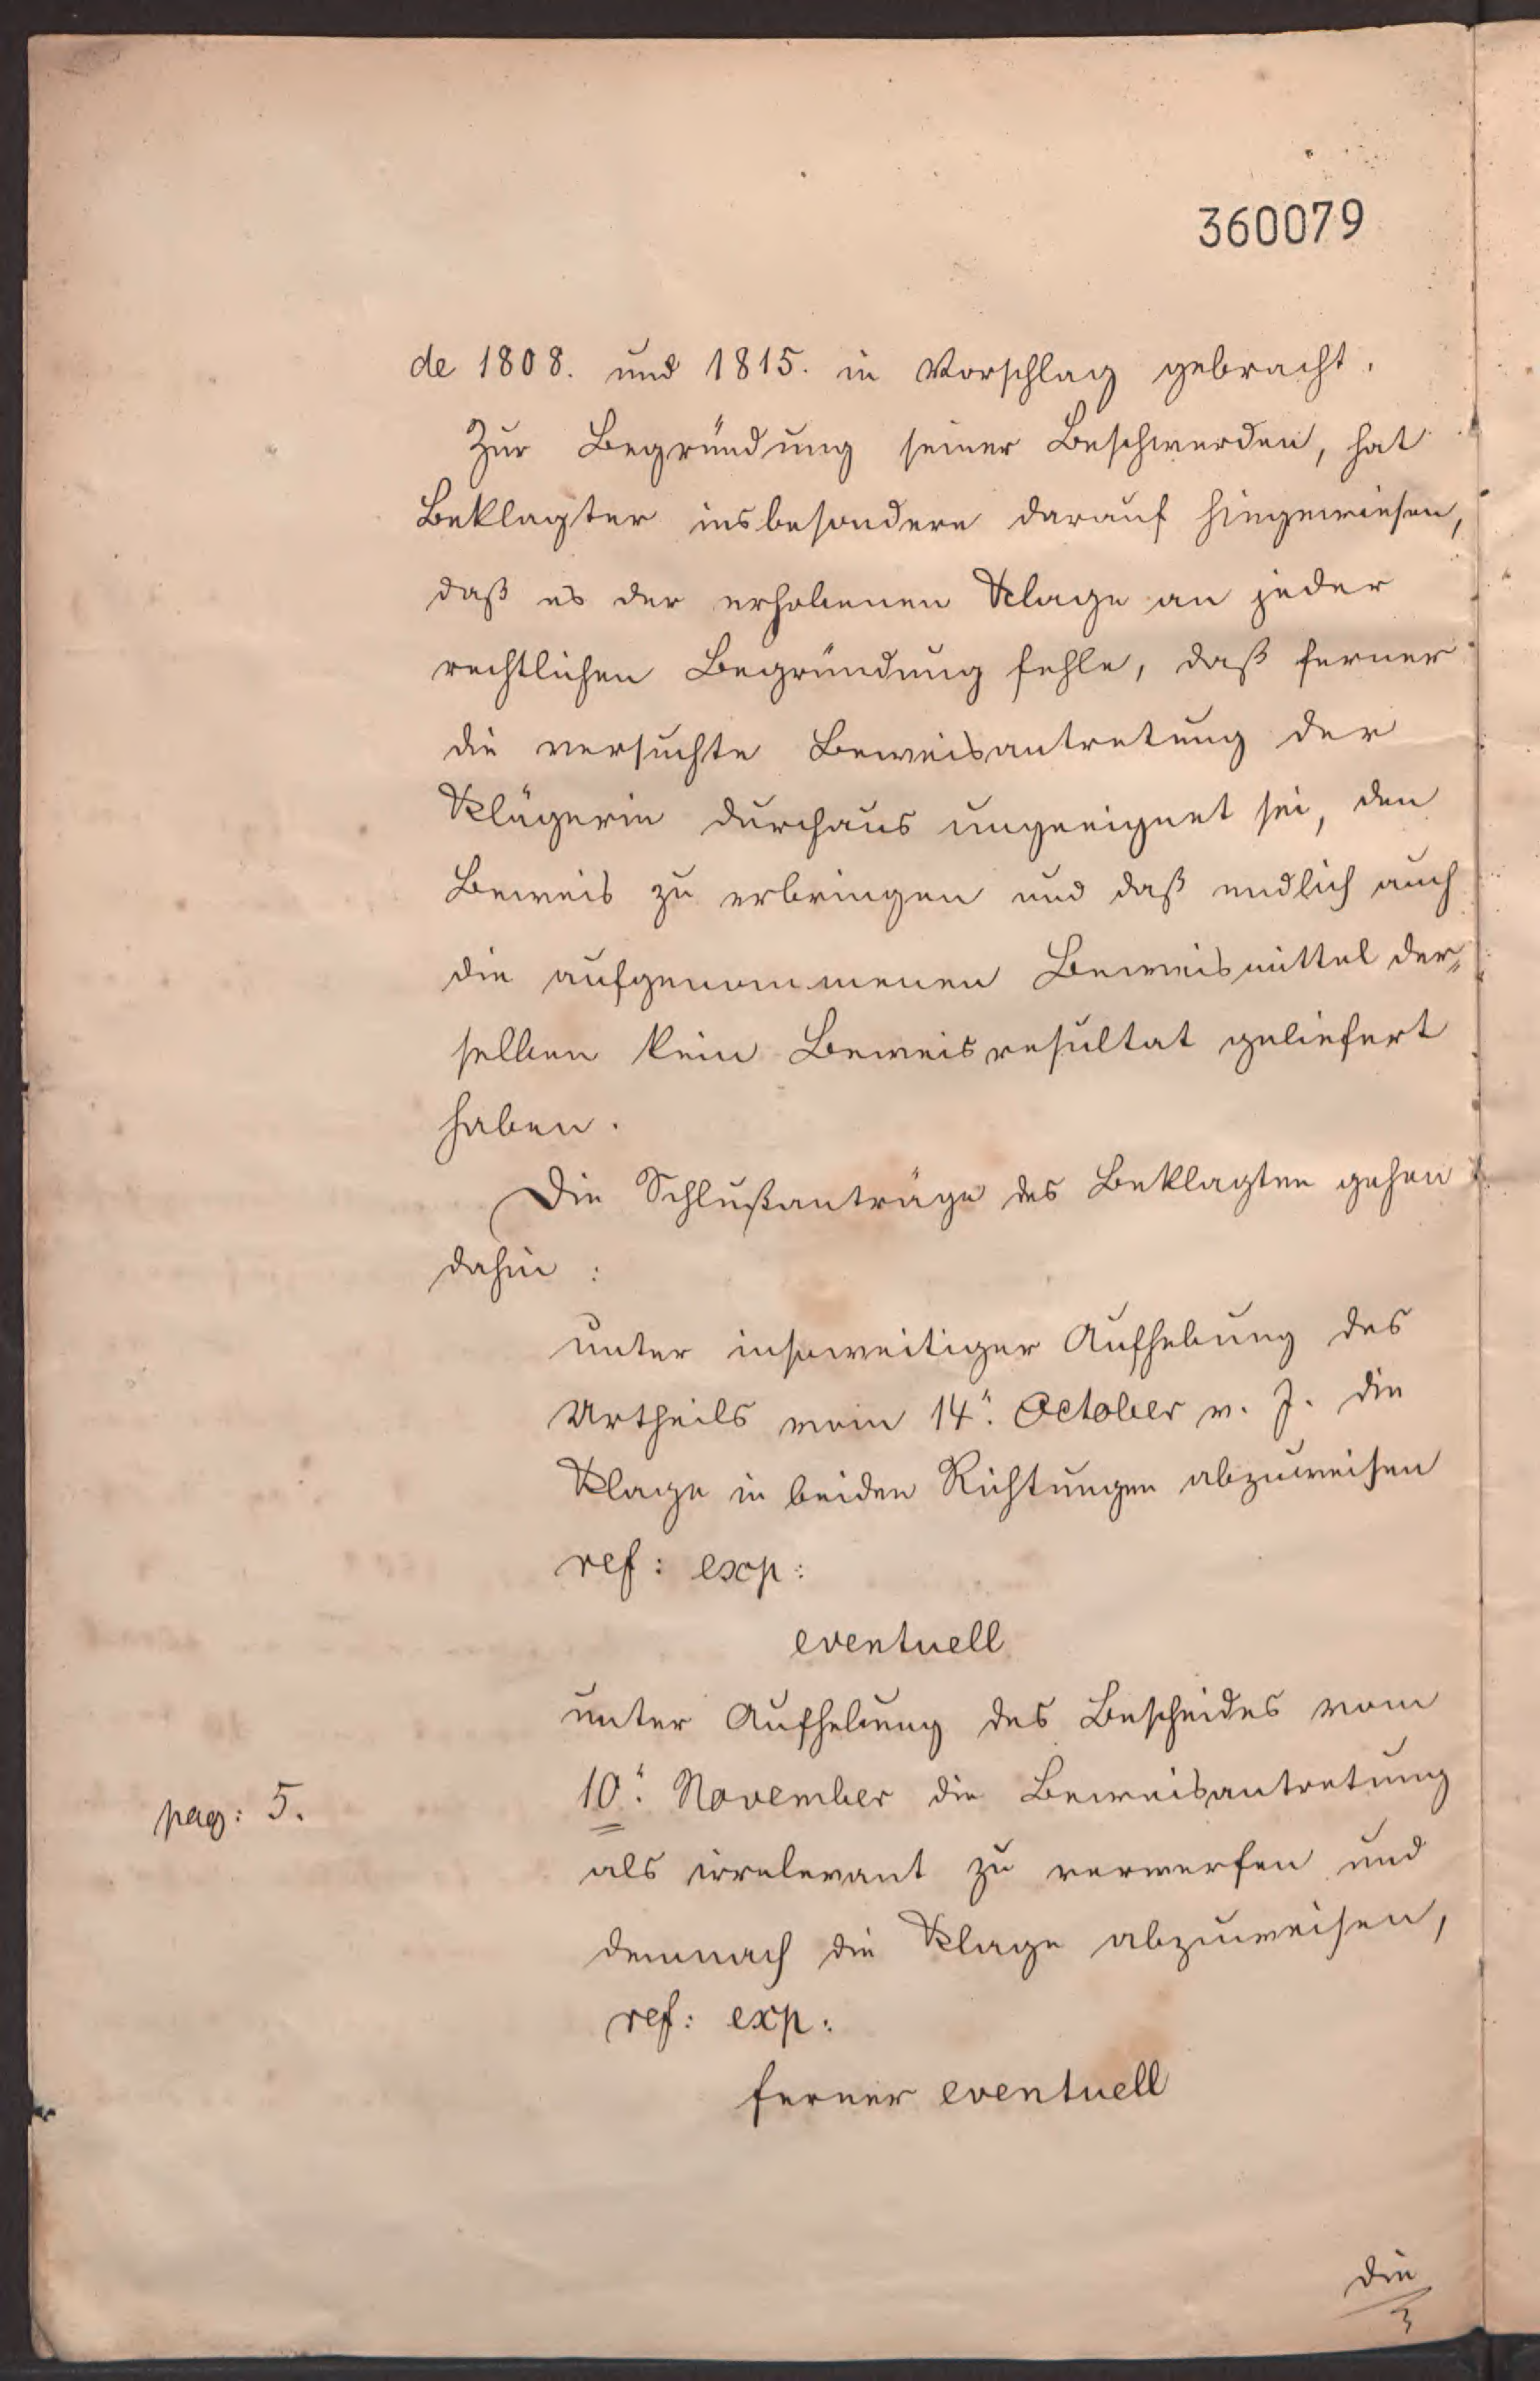 360079
de 1808. und 1815. in Vorschlag gebracht.
Zur Begründung seiner Beschwerden, hat
Beklagter insbesondere darauf hingewiesen,
daß es der erhobenen Klage an jeder
rechtlichen Begründung fehle, daß ferner
die versuchte Beweisantretung der
Klägerin durchaus ungeeignet sei, den
Beweis zu erbringen und daß endlich auch
die aufgenommenen Beweismittel der„
selben kein Beweisresultat geliefert
haben.
Die Schlußanträge des Beklagten gehen
dahin :
unter insoweitiger Aufhebung des
Urtheils vom 14". October v. J. die
Klage in beiden Richtungen abzuweisen
ref: exp:
eventuell
unter Aufhebung des Bescheides vom
pag: 5.
10". November die Beweisantretung
als irrelevant zu verwerfen und
demnach die Klage abzuweisen,
ref: exp:
ferner eventuell
die